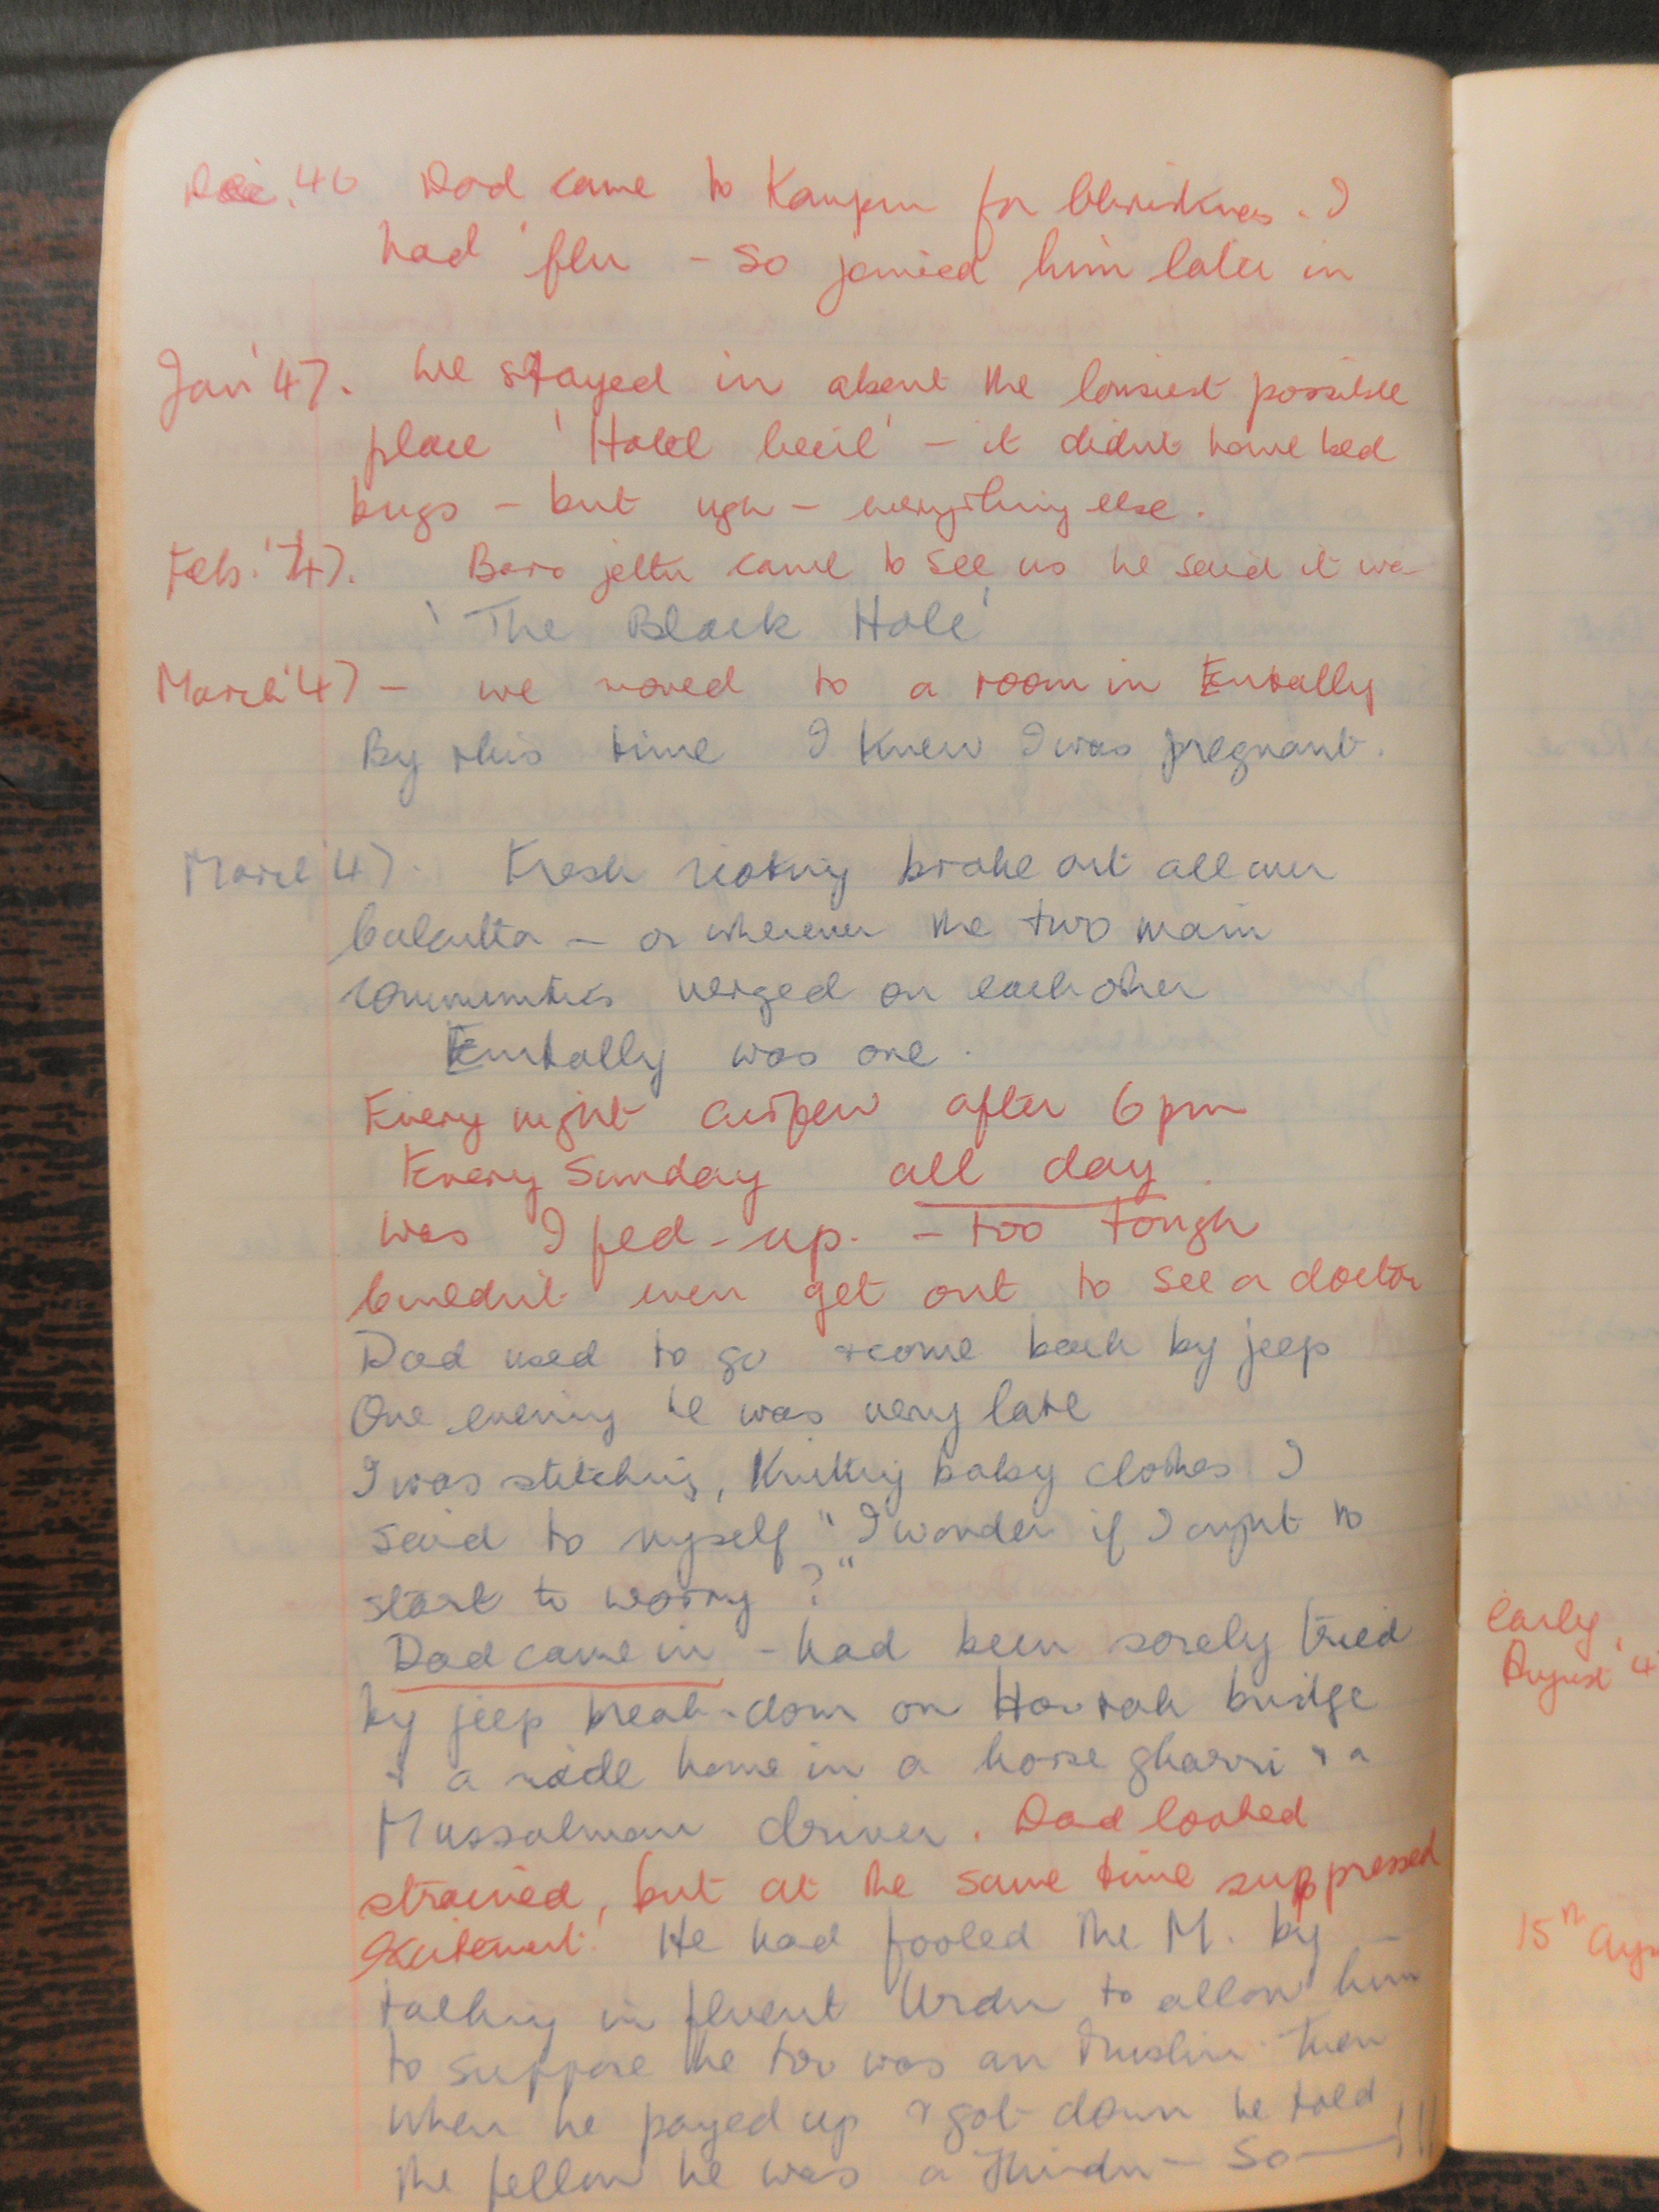 Dec. 46 Dad came to Kanpur for Christmas. I
had 'flu - so joined him later in
Jan '47. We stayed in about the lousiest possible
place 'Hotel Cecil' - it didnt have bed
bugs - but ugh - everything else.
Feb. '47. Baro jettu came to see us he said it wa
'The Black Hole'
March '47 - we moved to a room in Entally
By this time I knew I was pregnant.
March '47. Fresh rioting broke out all over
Calcutta - or wherever the two main
communities verged on each other
Entally was one.
Every night curfew after 6 pm
Every Sunday all day.
Was I fed-up. - too tough
Couldn't even get out to see a doctor
Dad used to go & come back by jeep
One evening he was very late
I was stitching, knitting baby clothes I
said to myself "I wonder if I ought to
start to worry ?"
Dad came in - had been sorely tried
by jeep break-down on Howrah bridge
& a ride home in a horse gharri & a
Mussalman driver. Dad looked
strained, but at the same time suppressed
excitement! He had fooled the M. by -
talking in fluent Urdu to allow him
to suppose he too was an Muslim. Then
when he payed up & got down he told
the fellow he was a Hindu - So—!!!
early
August '4
15th Augu